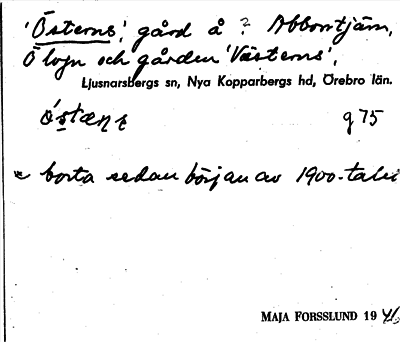 'Österns', gård å ? Abborrtjärn,
Ö logn och gården 'Västerns',
Ljusnarsbergs sn, Nya Kopparbergs hd, Örebro län.
g 75
borta sedan början av 1900-talet
MAJA FORSSLUND 19